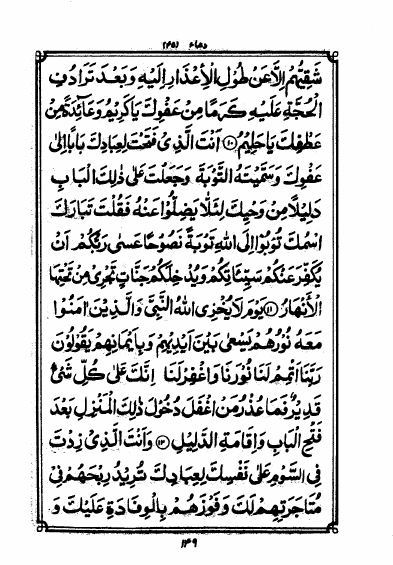 دعاء (۴۵)
شَقِيُّهُمْ اِلاَّ عَنْ طُوْلِ الْاِعْذَارِ اِلَيْهِ وَ بَعْدَ تَرَادُفِ
الْحُجَّةِ عَلَيْهِ كَرَمًا مِنْ عَفْوِكَ يَا كَرِيْمُ وَ عَائِدَةً مِنْ
عَطْفِكَ يَا حَلِيْمُ ⑩ اَنْتَ الَّذِىْ فَتَحْتَ لِعِبَادِكَ بَابًا اِلٰى
عَفْوِكَ وَ سَمَّيْتَهُ التَّوْبَةَ وَ جَعَلْتَ عَلٰى ذٰلِكَ الْبَابِ
دَلِيْلًا مِنْ وَحْيِكَ لِئَلَّا يَضِلُّوْا عَنْهُ فَقُلْتَ تَبَارَكَ
اسْمُكَ تُوْبُوْا اِلَى اللهِ تَوْبَةً نَصُوْحًا عَسٰى رَبُّكُمْ اَنْ
يُكَفِّرَ عَنْكُمْ سَيِّئَاتِكُمْ وَ يُدْخِلَكُمْ جَنَّاتٍ تَجْرِىْ مِنْ تَحْتِهَا
الْاَنْهَارُ ⑪ يَوْمَ لَا يُخْزِى اللهُ النَّبِىَّ وَ الَّذِيْنَ اٰمَنُوْا
مَعَهُ نُوْرُهُمْ يَسْعٰى بَيْنَ اَيْدِيْهِمْ وَ بِاَيْمَانِهِمْ يَقُوْلُوْنَ
رَبَّنَا اَتْمِمْ لَنَا نُوْرَنَا وَ اغْفِرْ لَنَا اِنَّكَ عَلٰى كُلِّ شَىْءٍ
قَدِيْرٌ فَمَا عُذْرُ مَنْ اَغْفَلَ دُخُوْلَ ذٰلِكَ الْمَنْزِلِ بَعْدَ
فَتْحِ الْبَابِ وَ اِقَامَةِ الدَّلِيْلِ ⑫ وَ اَنْتَ الَّذِىْ زِدْتَ
فِى السَّوْمِ عَلٰى نَفْسِكَ لِعِبَادِكَ تُرِيْدُ رِبْحَهُمْ فِىْ
مُتَاجَرَتِهِمْ لَكَ وَ فَوْزَهُمْ بِالْوِفَادَةِ عَلَيْكَ وَ
۱۴۹